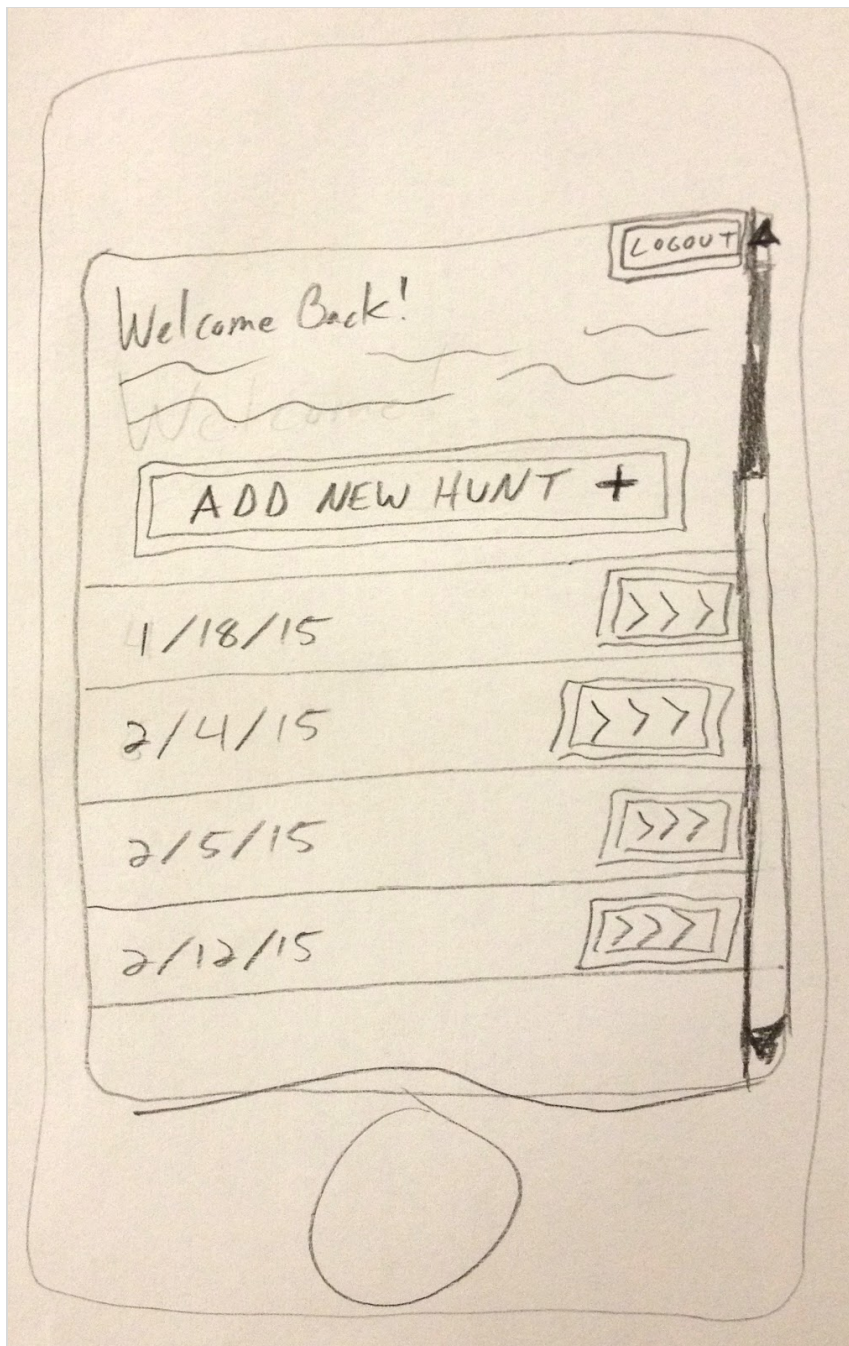 LOGOUT
Welcome Back!
Welcome!
ADD NEW HUNT +
1/18/15 >>>
2/4/15 >>>
2/5/15 >>>
2/12/15 >>>